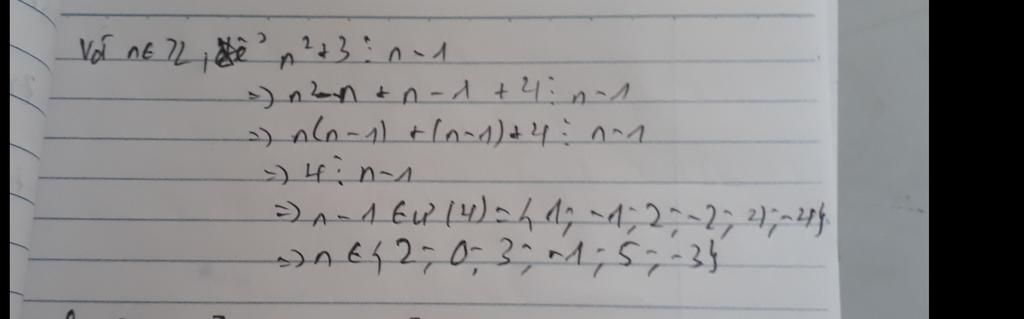 Với n ∈ Z, để n² + 3 ⋮ n - 1
=> n² - n + n - 1 + 4 ⋮ n - 1
=> n(n-1) + (n-1) + 4 ⋮ n - 1
=> 4 ⋮ n - 1
=> n - 1 ∈ Ư(4) = { 1; -1; 2; -2; 4; -4}
=> n ∈ { 2; 0; 3; -1; 5; -3}